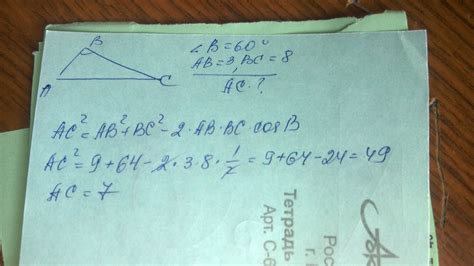 B
∠B=60°
AB=3, BC=8
A C AC-?
AC²=AB²+BC²-2·AB·BC cosB
AC²=9+64-2·3·8·1/2=9+64-24=49
AC=7
Тетрадь
Арт. С-6
Рос
г.